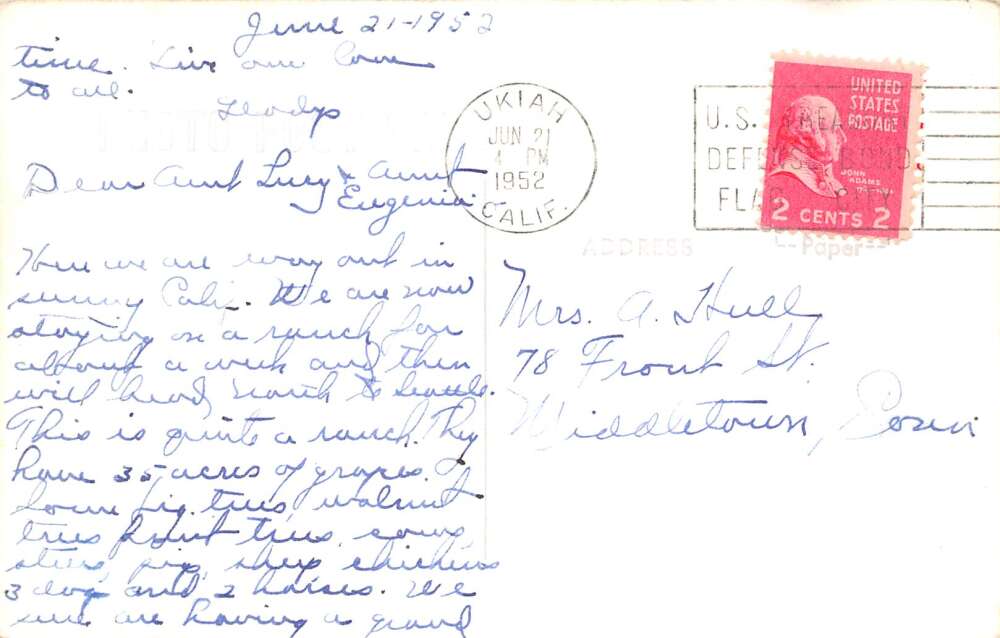 June 21-1952
time. Give our love
to all.
Gladys
Dear Aunt Lucy & Aunt
Eugenia.
Here we are way out in
sunny Calif. We are now
staying on a ranch for
about a week and then
will head north to Seattle.
This is quite a ranch. They
have 35 acres of grapes.
Some fig trees, walnut
trees fruit trees, cows,
steers, pigs, sheep chickens
3 dogs and 2 horses. We
sure are having a grand
UKIAH
JUN 21
4 PM
1952
CALIF.
U.S.
DEFENSE BOND
FLAG CITY
UNITED
STATES
POSTAGE
JOHN
ADAMS
2 CENTS 2
ADDRESS
Paper
Mrs. A. Hull
78 Front St.
Middletown, Conn